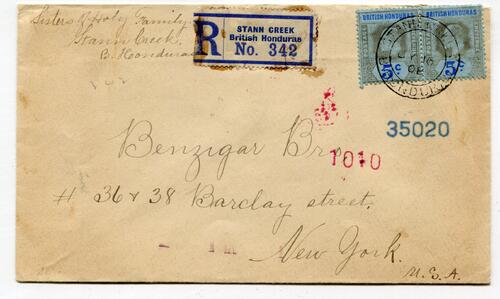 Sisters of Holy Family
Stann Creek,
B. Honduras
R
STANN CREEK
British Honduras
No. 342
BRITISH HONDURAS
BRITISH HONDURAS
5c
5c
35020
1010
Benzigar Bros.
# 36 & 38 Barclay street.
New York.
U.S.A.